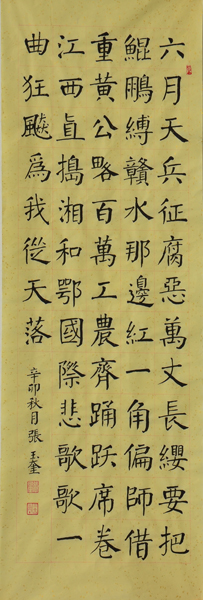 六月天兵征腐惡萬丈長纓要把
鯤鵬縛贛水那邊紅一角偏師借
重黃公畧百萬工農齊踊跃席卷
江西直搗湘和鄂國際悲歌歌一
曲狂飇為我從天落
辛卯秋月張玉奎